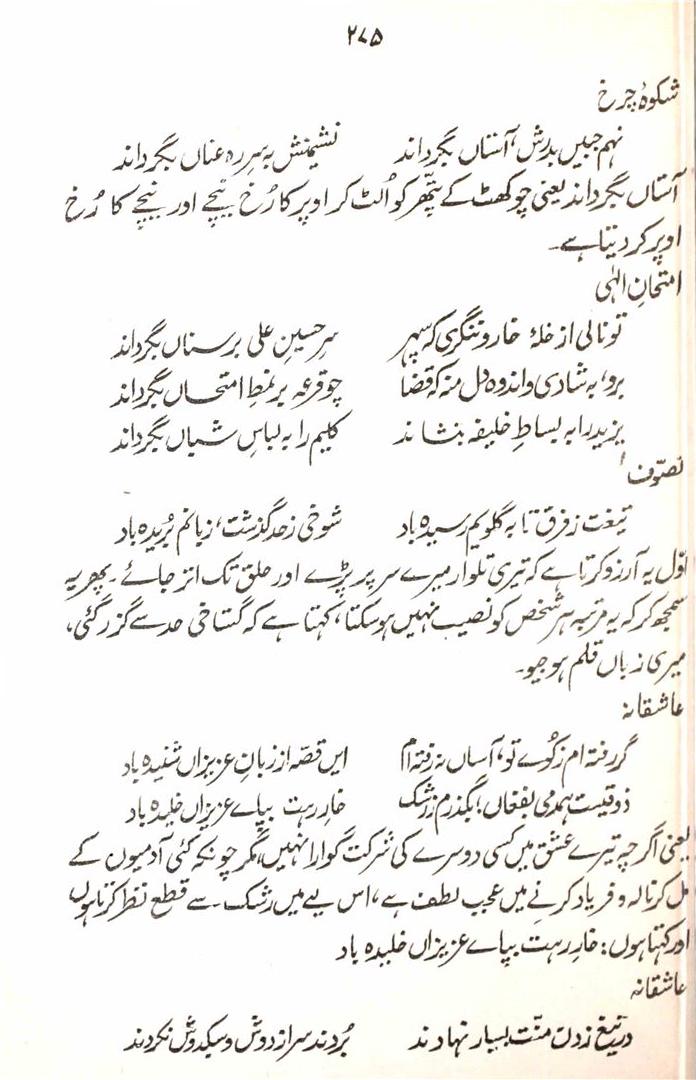 ۲۷۵
شکوۂ چرخ
نہم جبیں بدرش، آستاں بگرداند نشیمنش بہ سرِ رہ عناں بگرداند
آستاں بگرداند یعنی چوکھٹ کے پتھر کو اُلٹ کر اوپر کا رُخ نیچے اور نیچے کا رُخ
اوپر کر دیتا ہے۔
امتحانِ الٰہی
تو نالی از خلۂ خار و ننگری کہ سپہر سرِ حسینِ علی بر سناں بگرداند
برو، بہ شادی و اندوہ دل منہ کہ قضا چو قرعہ بر نمطِ امتحاں بگرداند
یزید را بہ بساطِ خلیفہ بنشاند کلیم را بہ لباسِ شباں بگرداند
تصوّف
تیغت ز فرق تا بہ گلویم رسیدہ باد شوخی ز حد گذشت، زبانم بُریدہ باد
اوّل یہ آرزو کرتا ہے کہ تیری تلوار میرے سر پر پڑے اور حلق تک اتر جائے۔ پھر یہ
سمجھ کر کہ یہ مرتبہ ہر شخص کو نصیب نہیں ہو سکتا، کہتا ہے کہ گستاخی حد سے گزر گئی،
میری زباں قلم ہو جیو۔
عاشقانہ
گر رفتہ ام ز کُوے تو، آساں نہ رفتہ ام ایں قصّہ از زبانِ عزیزاں شنیدہ باد
ذوقیست ہمدمی بفغاں؛ بگذرم ز رشک خارِ رہت بپاے عزیزاں خلیدہ باد
یعنی اگرچہ تیرے عشق میں کسی دوسرے کی شرکت گوارا نہیں، مگر چونکہ کئی آدمیوں کے
مل کر نالہ و فریاد کرنے میں عجب لطف ہے، اس لیے میں رشک سے قطع نظر کرتا ہوں
اور کہتا ہوں: خارِ رہت بپاے عزیزاں خلیدہ باد
عاشقانہ
در تیغ زدن منّت بسیار نہادند بُردند سر از دوش و سبکدوش نکردند